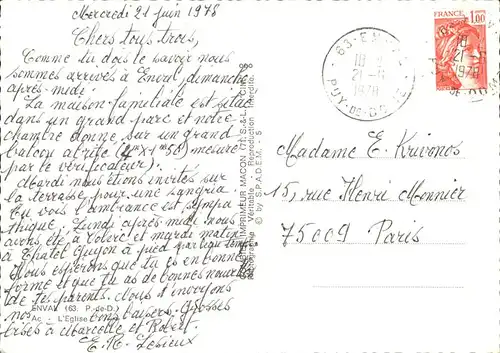 Mercredi 21 juin 1978
Chers tous trois,
Comme tu dois le savoir nous
sommes arrivés à Enval, dimanche
après-midi.
La maison familiale est située
dans un grand parc et notre
chambre donne sur un grand
balcon abrité (4m x 1m50) mesuré
par le vérificateur).
Mardi nous étions invités sur
la terrasse, pour une sangria.
Tu vois l'ambiance est sympa
thique, Lundi après midi nous
avons été à Volvic et mardi matin
à Chatel Guyon à pied par
Nous espérons que tu es en bonne
forme et que tu as de bonnes nouvelles
de tes parents. Nous t'envoyons
nos bons baisers. Grosses
bises à Marcelle et Robert.
E. R. Lesieux
ENVAL (63. P.-de-D.)
Ac - L'Eglise
IMPRIMEUR MACON (71. S.-&-L.)
Véritable - Reproduction interdite.
© by S.P.A.D.E.M. - 5
63 - EN
18 H
21 - 6
1978
PUY-DE-DOME
FRANCE
1,00
18 H
21
1978
Madame E. Krivonos
15, rue Henri Monnier
75009 Paris